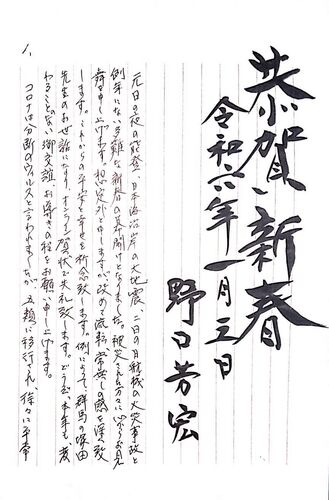 恭賀新春
令和六年一月五日
野口芳宏
元日の夜の能登、日本海沿岸の大地震、二日の日航機の火災事故と
例年にない多難な新春の幕開けとなりました。被災された方々に心からお見
舞を申し上げます。想定外と申しますが、改めて流転、無常の感を深く致
します。これからの平安と幸せを祈念致します。例によって、群馬の塚田
先生のお世話になり、オンライン賀状で失礼致します。どうぞ、本年も、変
わることない御交誼、お導きの程をお願い申し上げます。
コロナは分断のウィルスと言われましたが、五類に移行され、徐々に平常
1、